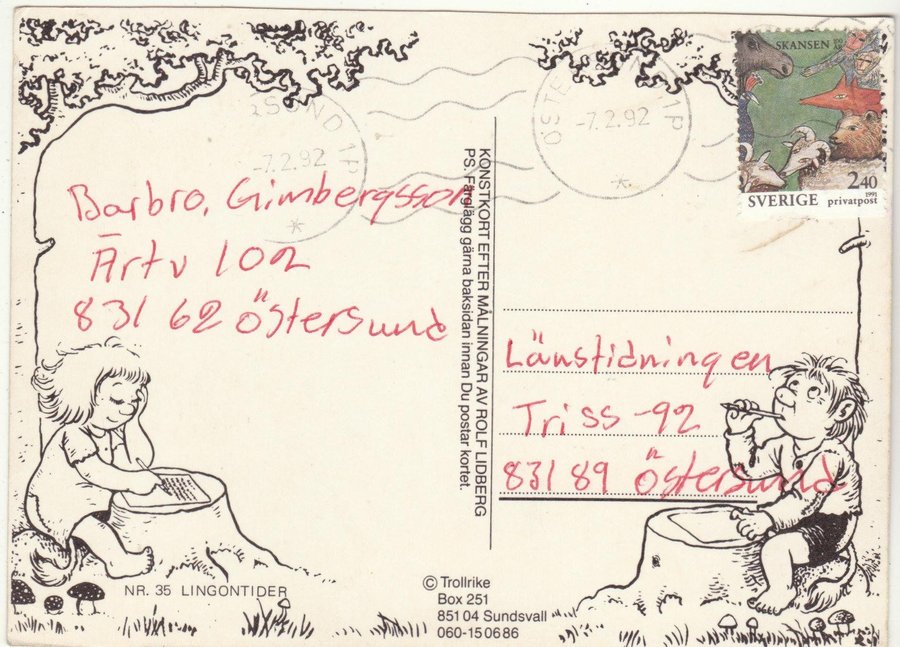 SKANSEN
2.40
1991
SVERIGE privatpost
SUND 1P
-7.2.92
ÖSTE 1P
-7.2.92
Barbro, Gimbergsson
Ärtv 102
831 62 Östersund
KONSTKORT EFTER MÅLNINGAR AV ROLF LIDBERG
PS. Färglägg gärna baksidan innan Du postar kortet.
Länstidningen
Triss-92
831 89 Östersund
NR. 35 LINGONTIDER
© Trollrike
Box 251
851 04 Sundsvall
060-15 06 86